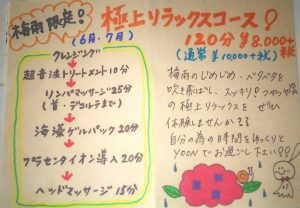 梅雨限定!
(6月、7月)
極上リラックスコース!
120分 ¥8,000+税
(通常 ¥10,000+税)
クレンジング
超音波トリートメント10分
リンパマッサージ25分
(首・デコルテまで)
海藻ゲルパック20分
プラセンタイオン導入20分
ヘッドマッサージ15分
梅雨のじめじめ・ベタベタを
吹き飛ばし、スッキリ!つやつや
の極上リラックスを ぜひ
体験しませんか??
自分の為の時間をゆっくりと
YOONでお過ごし下さい!!